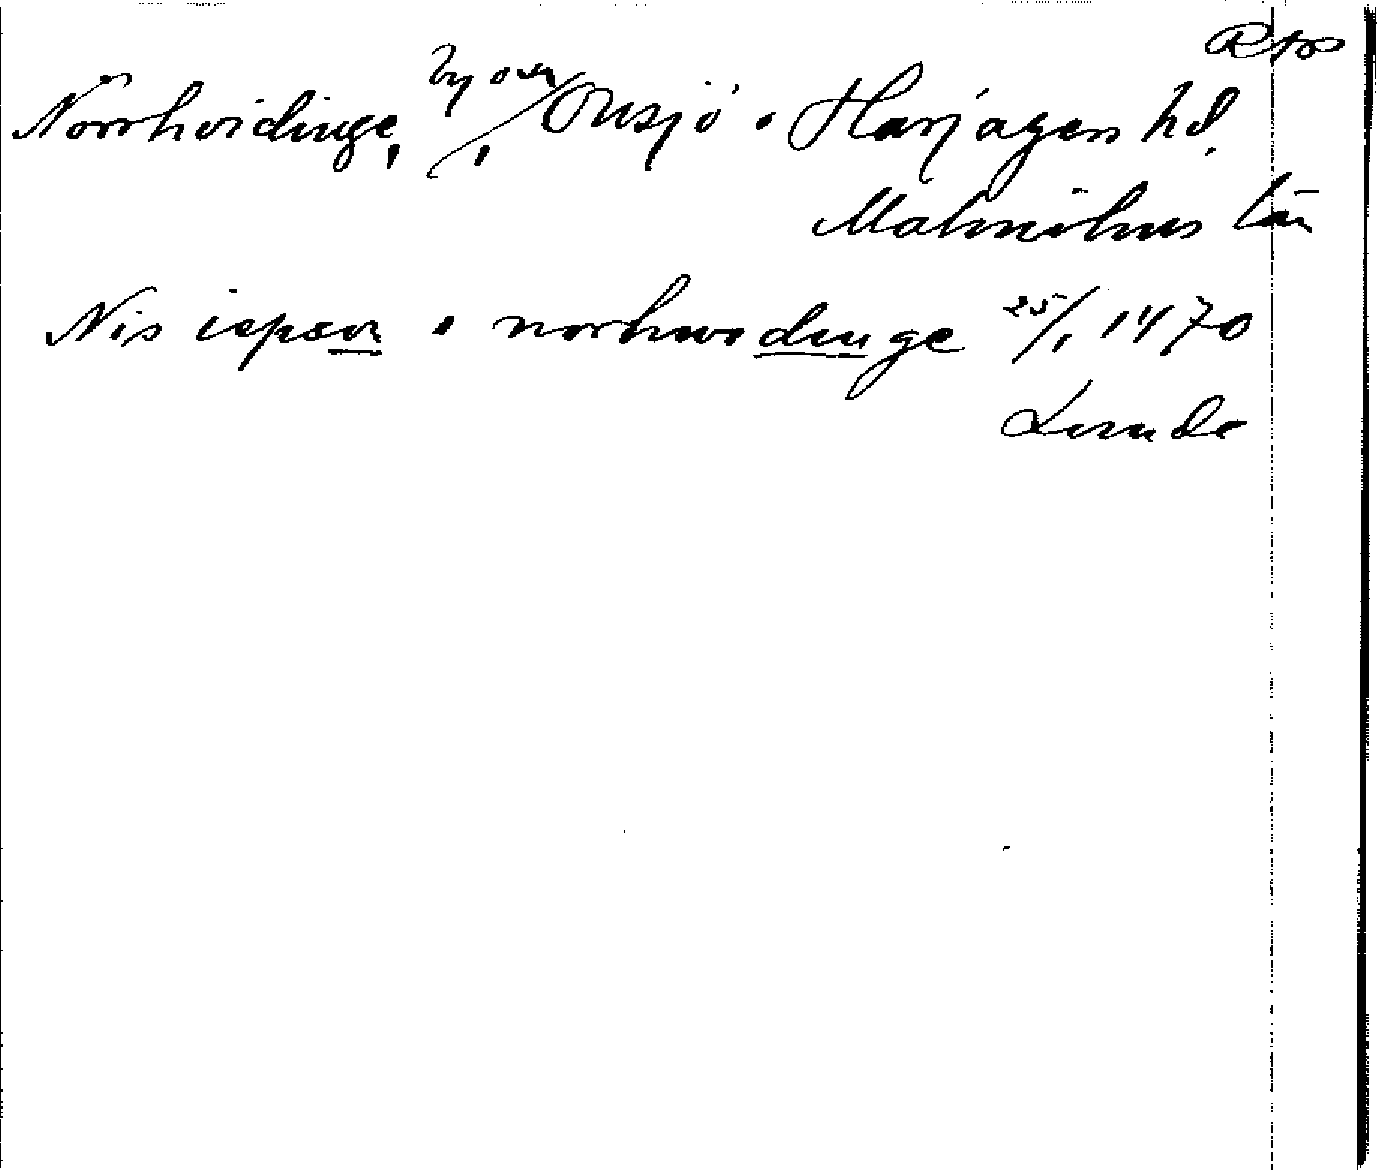 Norrhvidinge, by o sn, Onsjö o Harjagers hd.
Malmöhus län
Nis iepson i norhwidinge 25/1 1470
Lunde